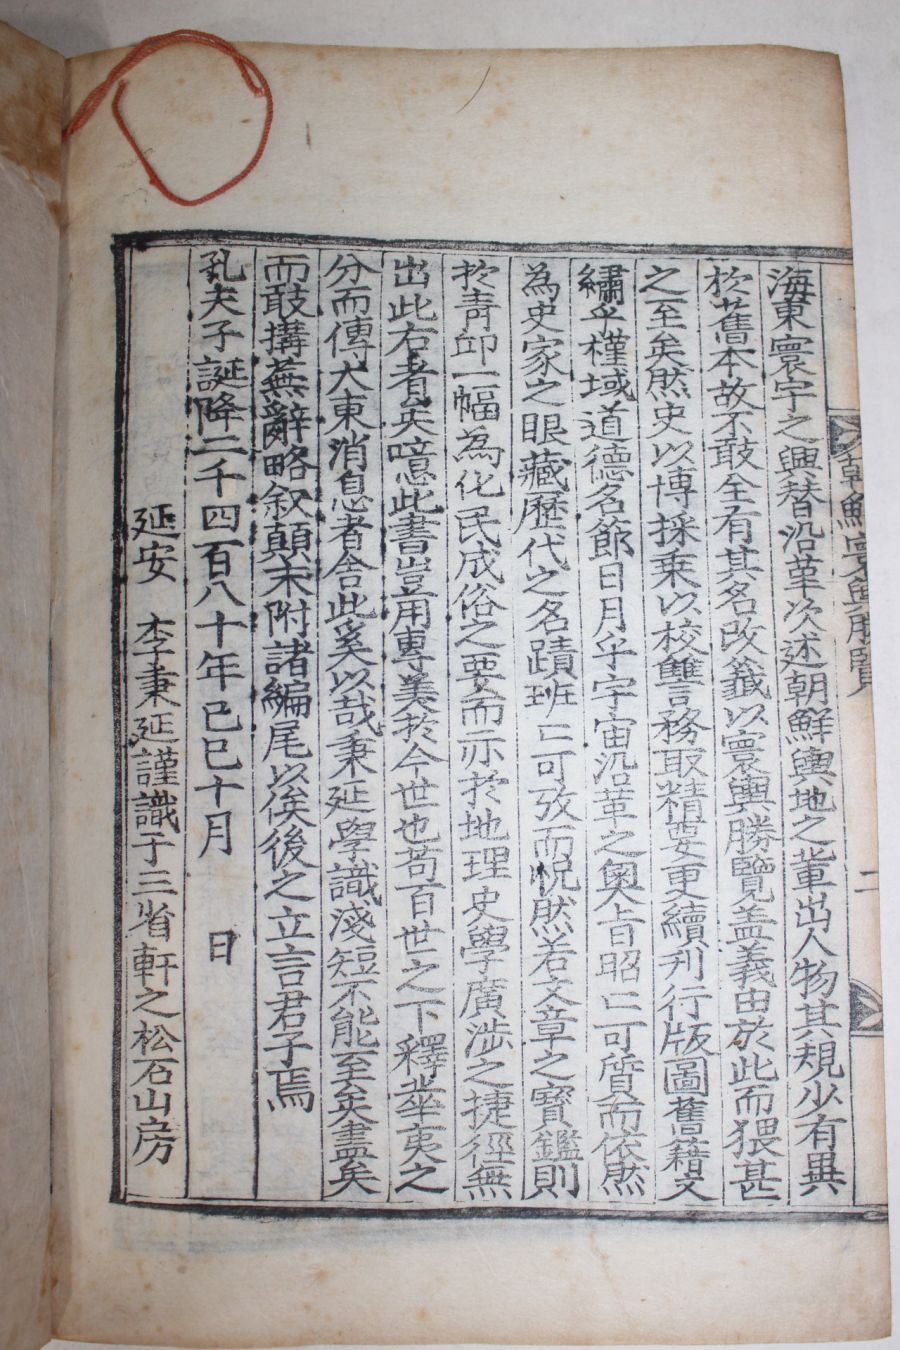 朝鮮寰輿勝覽
二
海東寰宇之興替沿革次述朝鮮輿地之輩出人物其規少有異
於舊本故不敢全有其名改籤以寰輿勝覽盖義由於此而猥甚
之至矣然史以博採乗以校讐言務取精要更續刋行版圖舊籍文
繡乎槿域道德名節日月乎宇宙沿革之奥旨昭〻可質而依然
為史家之眼藏歷代之名蹟班〻可攷而怳然若文章之寶鑑則
於靑邱一幅為化民成俗之要而亦於地理史學廣涉之捷徑無
出此右者矣噫此書豈用專美於今世也苟百世之下釋坐夷之
分而傳大東消息者舍此奚以哉秉延學識淺短不能至矣盡矣
而敢搆蕪辭略叙顛末附諸編尾以俟後之立言君子焉
孔夫子誕降二千四百八十年己巳十月 日
延安 李秉延謹識于三省軒之松石山房